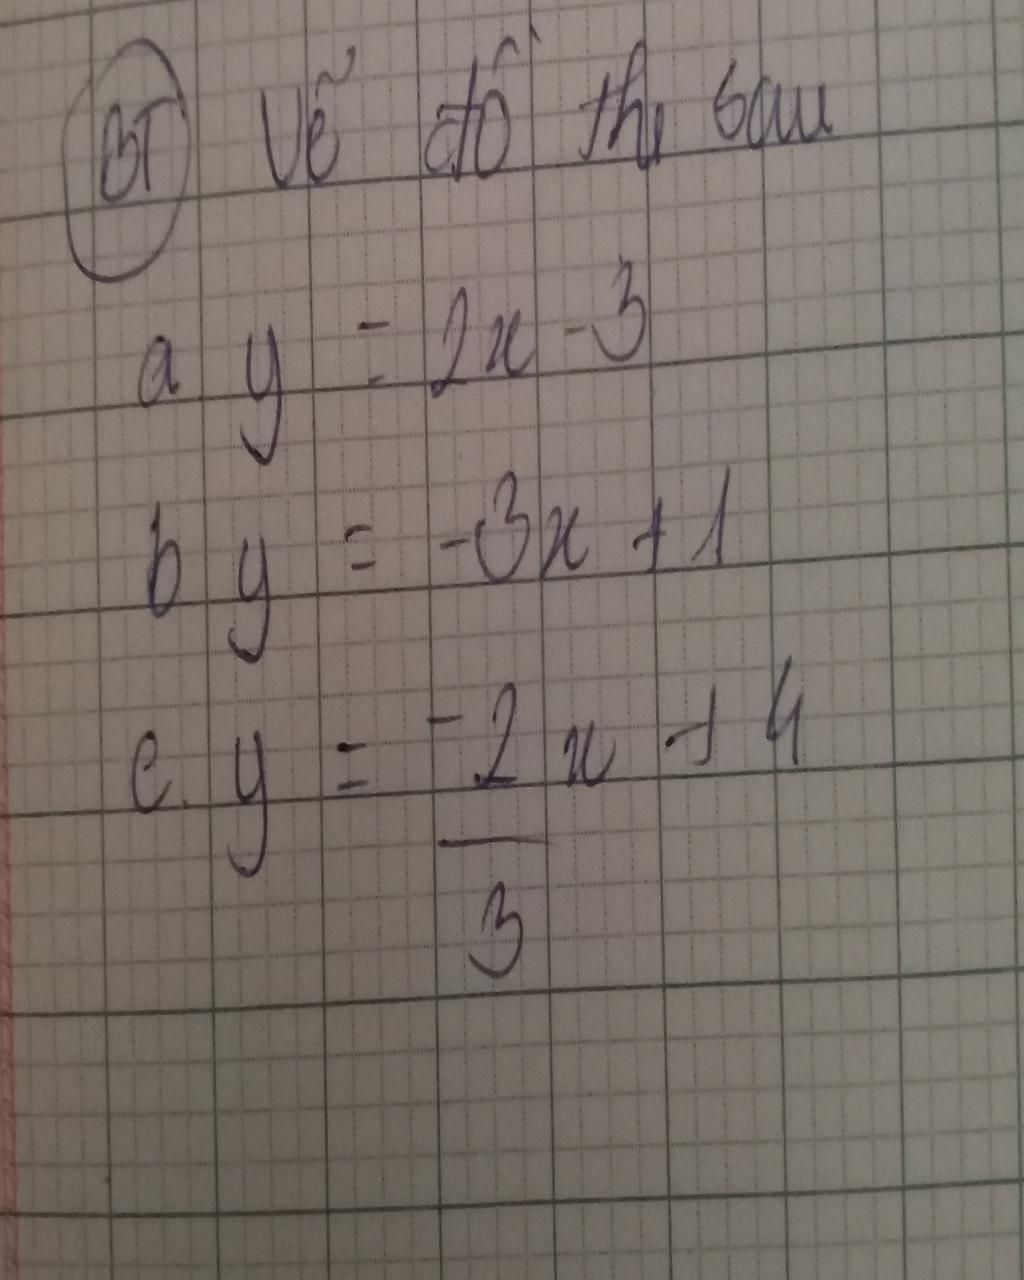 BT Vẽ đồ thị sau
a y = 2x - 3
b y = -3x + 1
c. y = -2x + 4
3